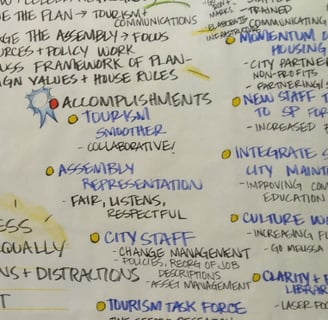 THE PLAN → TOURISM +
COMMUNICATIONS
THE ASSEMBLY → FOCUS
+ POLICY WORK
FRAMEWORK OF PLAN-
VALUES + HOUSE RULES
ACCOMPLISHMENTS
TOURISM
SMOOTHER
- COLLABORATIVE!
ASSEMBLY
REPRESENTATION
- FAIR, LISTENS,
RESPECTFUL
CITY STAFF
- CHANGE MANAGEMENT
- POLICIES, REORG OF JOB
DESCRIPTIONS
- ASSET MANAGEMENT
TOURISM TASK FORCE
EQUALLY
+ DISTRACTIONS
- TRAINED
COMMUNICATING
INFRASTRUCTURE
MOMENTUM
HOUSING
- CITY PARTNER
NON-PROFITS
- PARTNERING/
NEW STAFF
TO SP FOR
- INCREASED
INTEGRATE
CITY MAINT
- IMPROVING
EDUCATION
CULTURE
- INCREASING
- GO MELISSA
CLARITY +
LIBRAR
- LASER